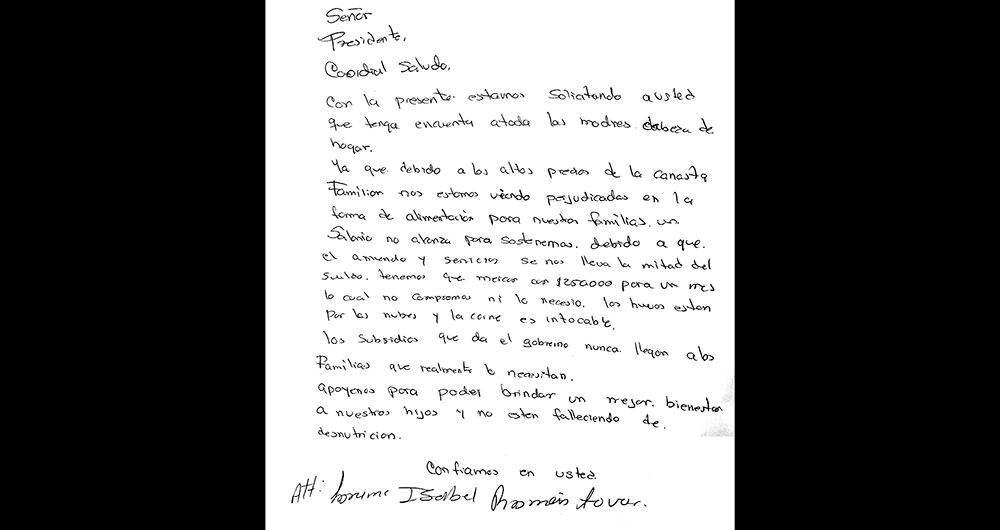 Señor
Presidente,
Coordial Saludo,
Con la presente estamos Solicitando austed
que tenga encuenta atoda las madres cabeza de
hogar.
Ya que debido a los altos precios de la canasta
Familiar nos estamos viendo perjudicadas en la
forma de alimentación para nuestra familias. un
Salario no alcanza para sostenernos. debido a que
el arriendo y servicios se nos lleva la mitad del
sueldo. tenemos que mercar con $250.000 para un mes
lo cual no compramos ni lo necesario. los huevos estan
por las nubes y la carne es intocable.
los Subsidios que da el gobierno nunca llegan a los
Familias que realmente lo necesitan.
apoyenos para poder brindar un mejor bienestar
a nuestros hijos y no esten falleciendo de.
desnutricion.
Confiamos en usted.
Att: Isabel Tovar.